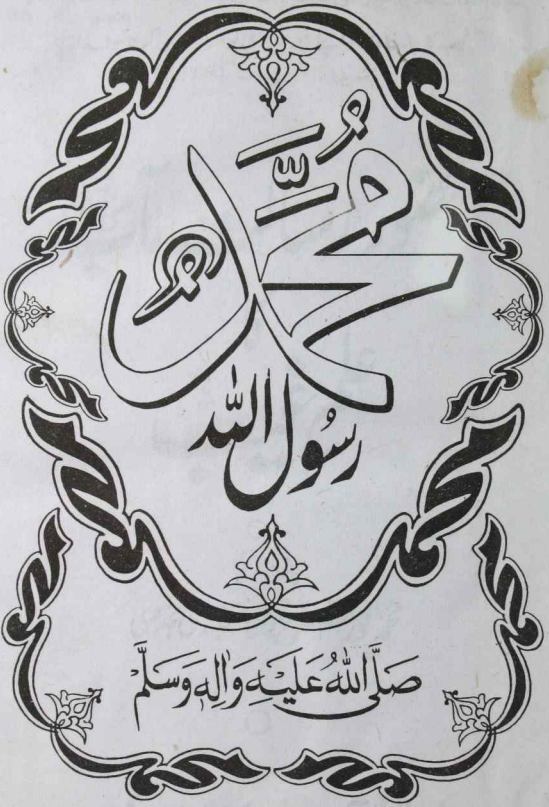 مُحَمَّدٌ
رسُول الله
صَلَّى اللهُ عَلَيْهِ وَاٰلِهٖ وَسَلَّمْ